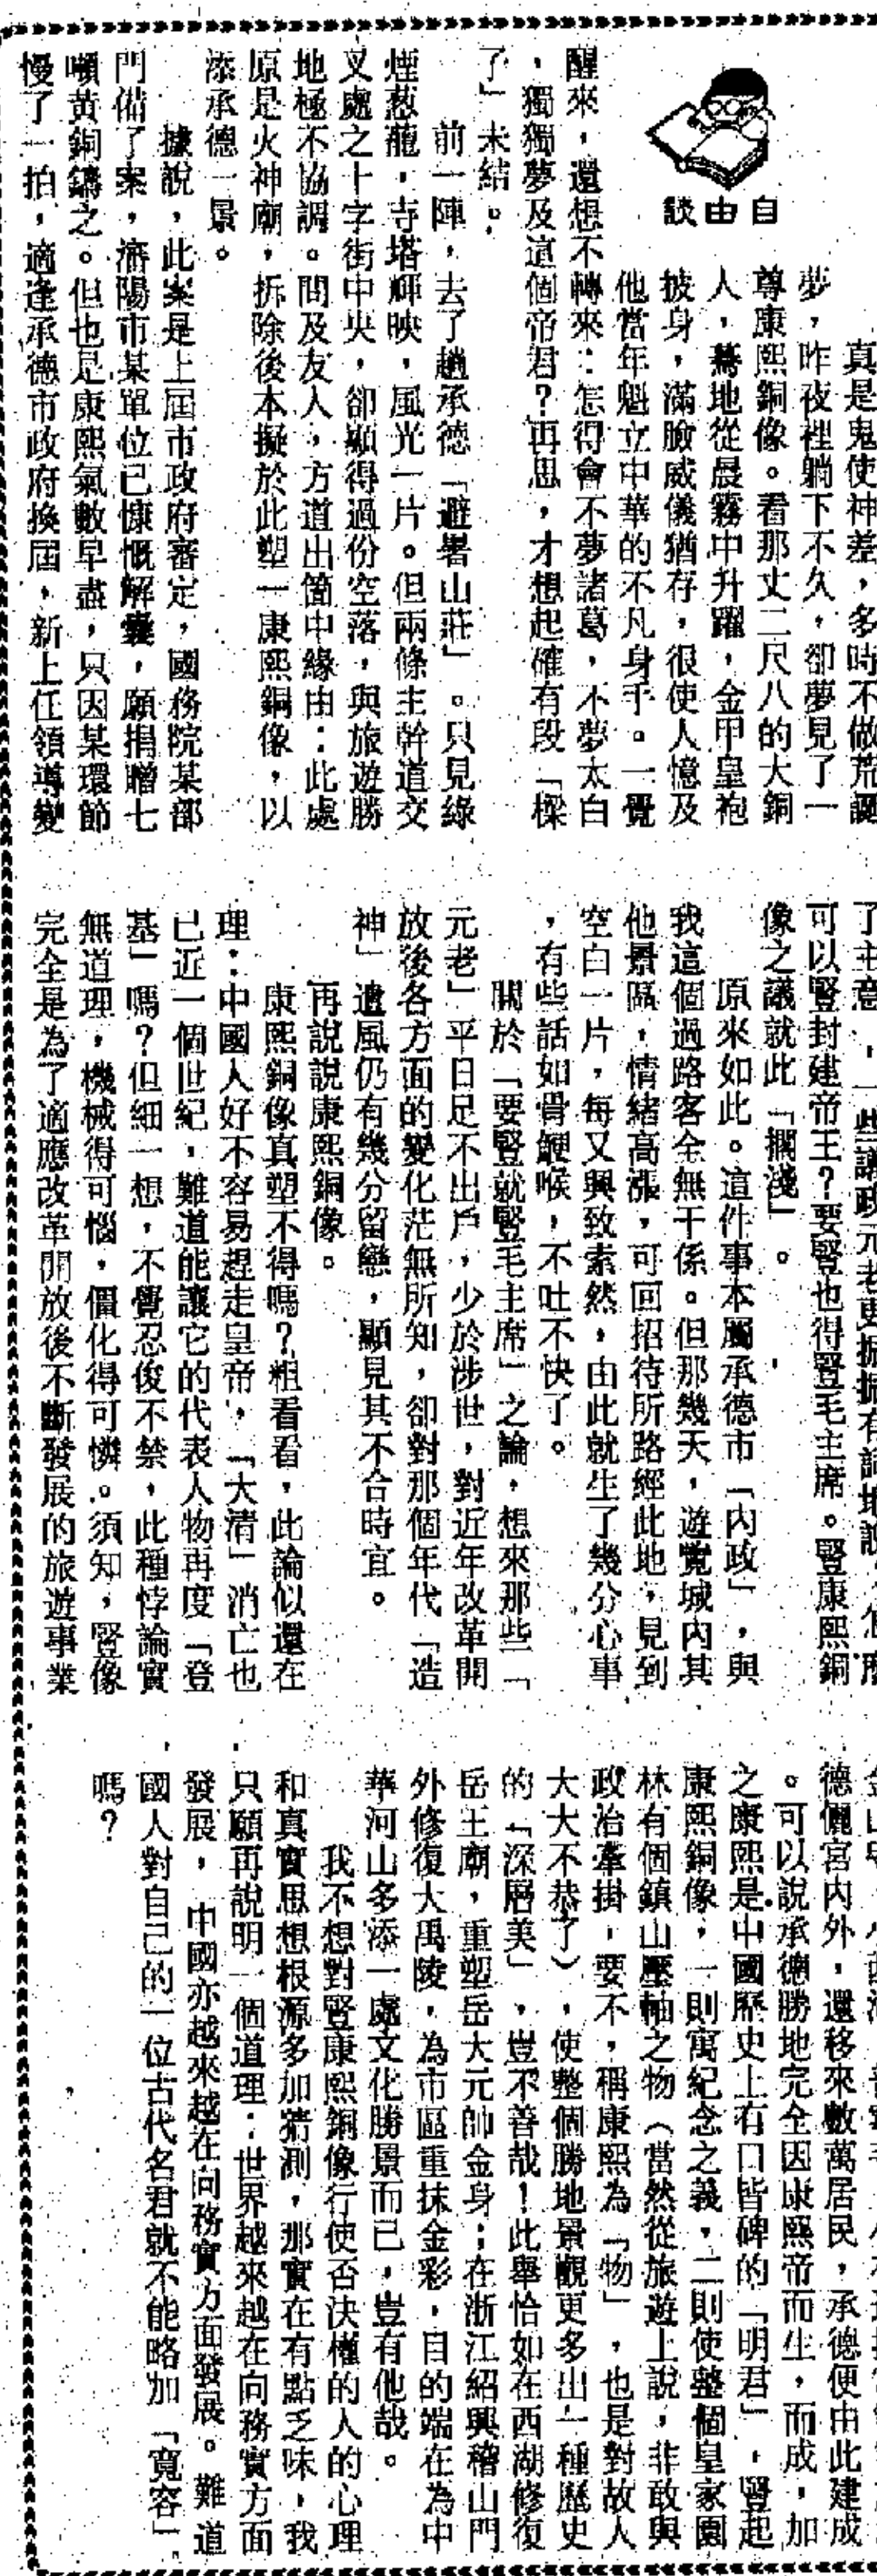 自由談
真是鬼使神差，多時不做荒誕
夢，昨夜裡躺下不久，卻夢見了一
尊康熙銅像。看那丈二尺八的大銅
人，驀地從晨霧中升躍，金甲皇袍
披身，滿臉威儀猶存，很使人憶及
他當年魁立中華的不凡身手。一覺
醒來，還想不轉來：怎得會不夢諸葛，不夢太白
，獨獨夢及這個帝君？再思，才想起確有段「樑
了」未結。
前一陣，去了趟承德「避暑山莊」。只見綠
煙葱蘢，寺塔輝映，風光一片。但兩條主幹道交
叉處之十字街中央，卻顯得過份空落，與旅遊勝
地極不協調。問及友人，方道出箇中緣由：此處
原是火神廟，拆除後本擬於此塑一康熙銅像，以
添承德一景。
據說，此案是上屆市政府審定，國務院某部
門備了案，瀋陽市某單位已慷慨解囊，願捐贈七
噸黃銅鑄之。但也是康熙氣數早盡，只因某環節
慢了一拍，適逢承德市政府換屆，新上任領導變
了主意，一些議政元老更振振有詞地說：怎麼
可以豎封建帝王？要豎也得豎毛主席。豎康熙銅
像之議就此「擱淺」。
原來如此。這件事本屬承德市「內政」，與
我這個過路客全無干係。但那幾天，遊覽城內其
他景區，情緒高漲，可回招待所路經此地，見到
空白一片，每又興致索然，由此就生了幾分心事
，有些話如骨鯁喉，不吐不快了。
關於「要豎就豎毛主席」之論，想來那些「
元老」平日足不出戶，少於涉世，對近年改革開
放後各方面的變化茫無所知，卻對那個年代「造
神」遺風仍有幾分留戀，顯見其不合時宜。
再說說康熙銅像。
康熙銅像真塑不得嗎？粗看看，此論似還在
理：中國人好不容易趕走皇帝，「大清」消亡也
已近一個世紀，難道能讓它的代表人物再度「登
基」嗎？但細一想，不覺忍俊不禁，此種悖論實
無道理，機械得可惱，僵化得可憐。須知，豎像
完全是為了適應改革開放後不斷發展的旅遊事業
德儷宮內外，還移來數萬居民，承德便由此建成
。可以說承德勝地完全因康熙帝而生，而成，加
之康熙是中國歷史上有口皆碑的「明君」，豎起
康熙銅像，一則寓紀念之義，二則使整個皇家園
林有個鎮山壓軸之物（當然從旅遊上說，非敢與
政治牽掛，要不，稱康熙為「物」，也是對故人
大大不恭了），使整個勝地景觀更多出一種歷史
的「深層美」，豈不善哉！此舉恰如在西湖修復
岳王廟，重塑岳大元帥金身；在浙江紹興稽山門
外修復大禹陵，為市區重抹金彩，目的端在為中
華河山多添一處文化勝景而已，豈有他哉。
我不想對豎康熙銅像行使否決權的人的心理
和真實思想根源多加猜測，那實在有點乏味，我
只願再說明一個道理：世界越來越在向務實方面
發展，中國亦越來越在向務實方面發展。難道
國人對自己的一位古代名君就不能略加「寬容」
嗎？